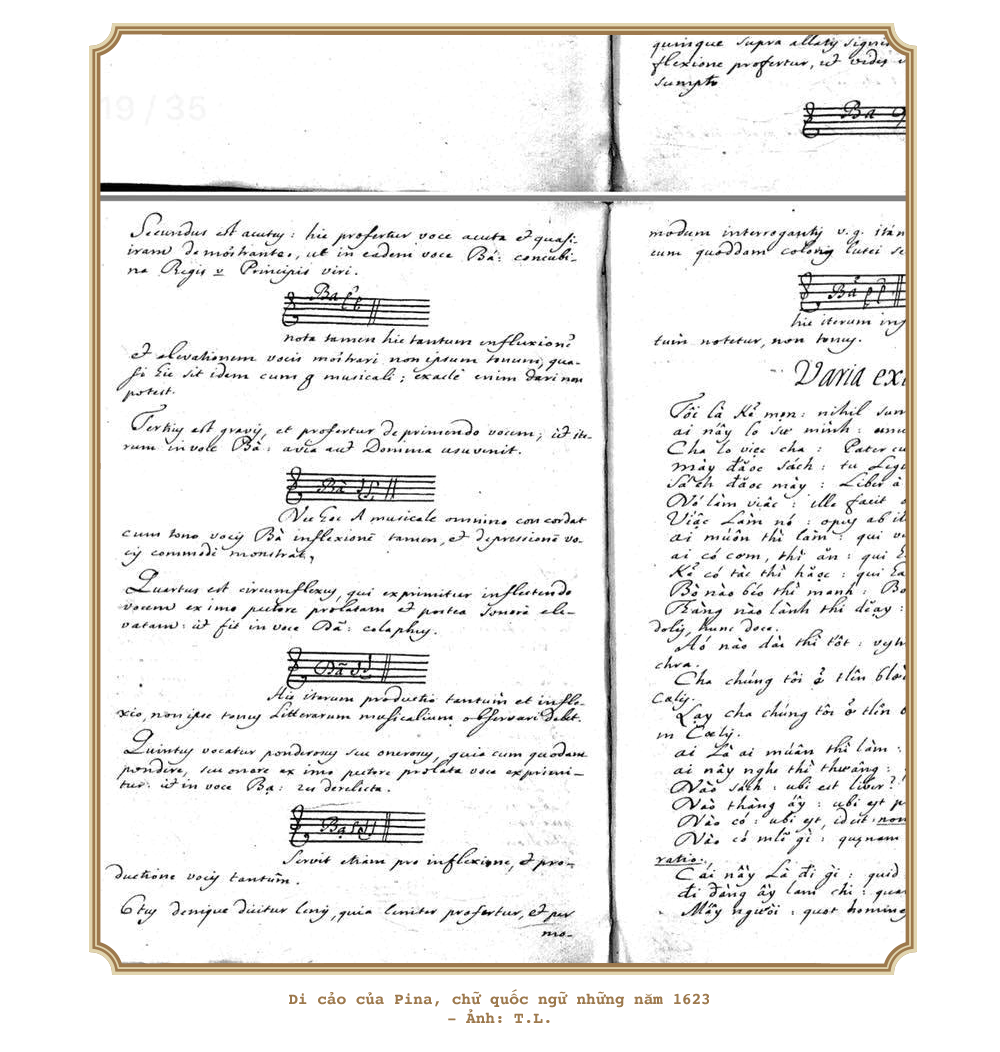 19 / 35
quinque supra allatis signis
flexione profertur, ut vides
sumpto
Ba
Secundus est acutus: hic profertur voce acuta et quasi
iram demonstrante, ut in eadem voce Bá: concubi-
na Regis v Principis viri.
Bá
nota tamen hic tantum inflexionẽ
et elevationem vocis monstrari non ipsum tonum, qua-
si hic sit idem cum g musicali; exacte enim dari non
potest.
Tertius est gravis, et profertur deprimendo vocem; ut ite-
rum in voce Bà: avia aut Domina usuvenit.
Bà
Nec hoc A musicale omnino concordat
cum tono vocis Bà inflexionẽ tamen, et depressionẽ vo-
cis commodè monstrat,
Quartus est circumflexus, qui exprimitur inflectendo
vocem ex imo pectore prolatam et postea sonorè ele-
vatam: ut fit in voce Bã: colaphus.
Bã
Hic iterum productio tantum et infle-
xio, non ipse tonus Litterarum musicalium observari debet.
Quintus vocatur ponderosus seu onerosus, quia cum quodam
pondere, seu onere ex imo pectore prolata voce exprimi-
tur: ut in voce Bạ: res derelicta.
Bạ
Servit etiam pro inflexione, et pro-
ductione vocis tantum.
6tus denique dicitur lenis, quia leniter profertur, et per
mo-
modum interrogantis v.g. itan
cum quoddam
Bả
hic iterum inf
tum notetur, non tonus.
Varia ex
Tôi là kẻ mọn: nihil sum
ai nấy lo sự mình:
Cha lo việc cha: Pater cu
mày đăọc sách: tu Legi
Sách đăọc mày: Liber à
Nó làm việc: ille facit
Việc Làm nó: opus ab il
ai muốn thì làm: qui v
ai có cơm, thì ăn: qui
Kẻ có tác thì hăọc: qui
Bò nào béo thì mạnh: Bo
Thàng nào lành thì dĕạy:
dolis, hunc doce.
Áó nào dài thì tốt:
chra.
Cha chúng tôi ở tlên blời
Cælis.
Lạy cha chúng tôi ở tlên
in Cælis.
ai Là ai muấn thì làm:
ai nấy nghe thì thương:
Nào sách: ubi est liber?
Nào thàng ấy: ubi est p
Nào có: ubi est, id est non
Nào có mlẽ gì: quænam
ratio.
Cái này Là đí gì: quid
đí đàng ấy làm chi: qua
Mấy người: quot homines
Di cảo của Pina, chữ quốc ngữ những năm 1623
– Ảnh: T.L.